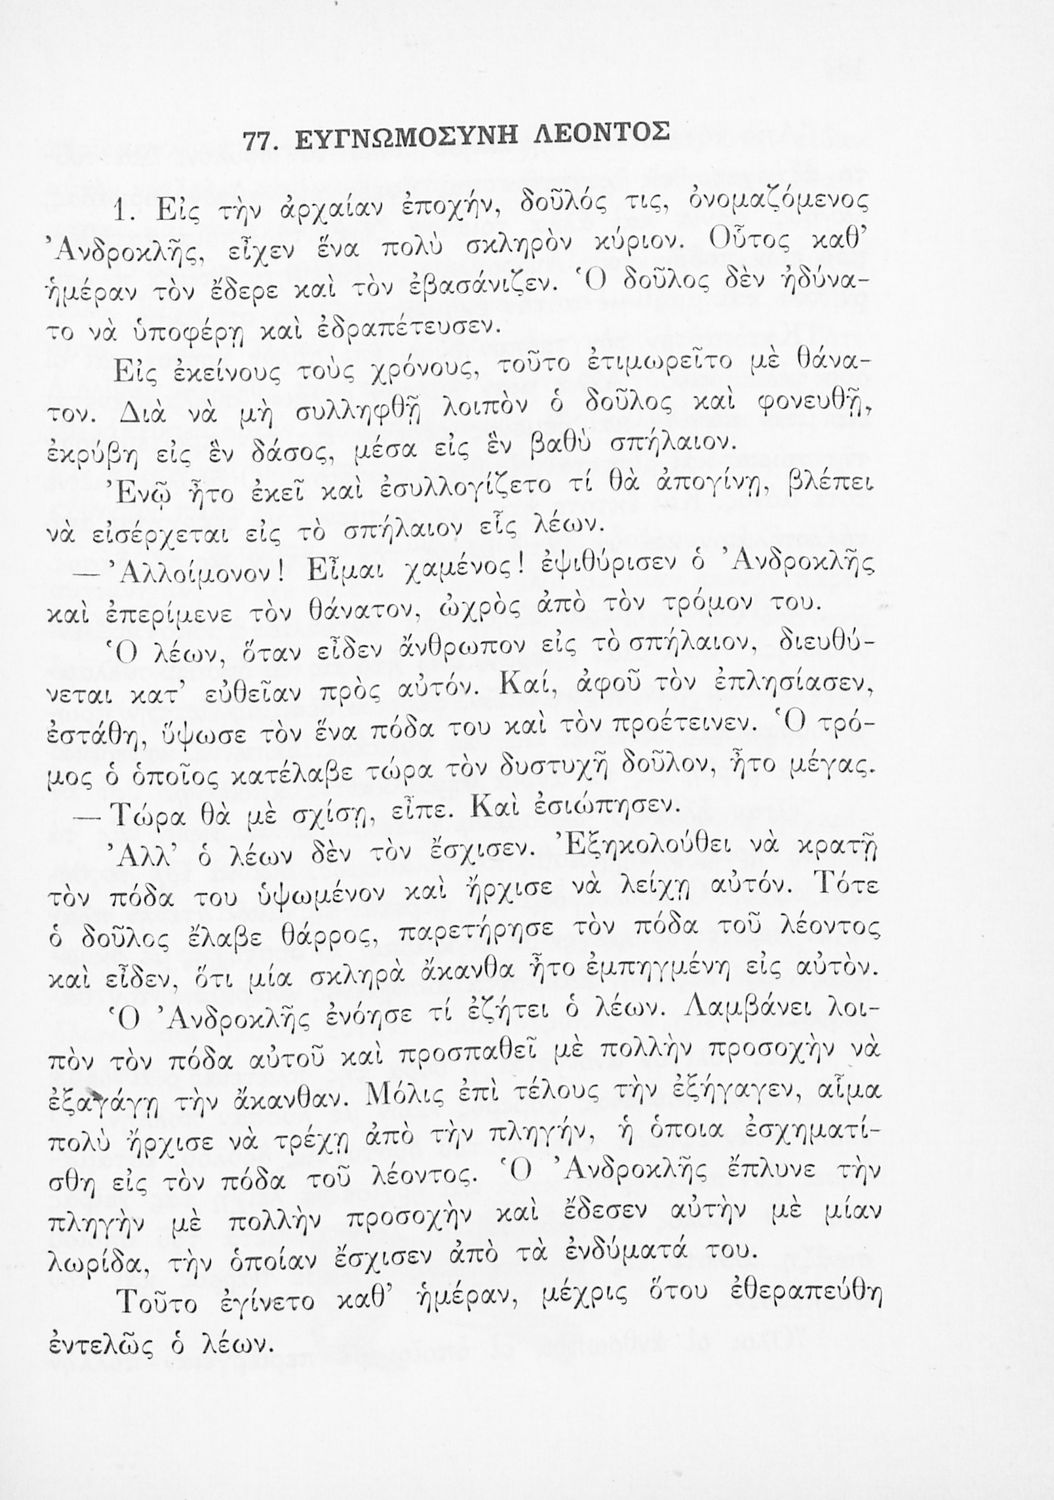 77. ΕΥΓΝΩΜΟΣΥΝΗ ΛΕΟΝΤΟΣ
1. Εἰς τὴν ἀρχαίαν ἐποχήν, δοῦλός τις, ὀνομαζόμενος
Ἀνδροκλῆς, εἶχεν ἕνα πολὺ σκληρὸν κύριον. Οὗτος καθ’
ἡμέραν τὸν ἔδερε καὶ τὸν ἐβασάνιζεν. Ὁ δοῦλος δὲν ἠδύνα-
το νὰ ὑποφέρῃ καὶ ἐδραπέτευσεν.
Εἰς ἐκείνους τοὺς χρόνους, τοῦτο ἐτιμωρεῖτο μὲ θάνα-
τον. Διὰ νὰ μὴ συλληφθῇ λοιπὸν ὁ δοῦλος καὶ φονευθῇ,
ἐκρύβη εἰς ἓν δάσος, μέσα εἰς ἓν βαθὺ σπήλαιον.
Ἐνῷ ἦτο ἐκεῖ καὶ ἐσυλλογίζετο τί θὰ ἀπογίνῃ, βλέπει
νὰ εἰσέρχεται εἰς τὸ σπήλαιον εἷς λέων.
— Ἀλλοίμονον! Εἶμαι χαμένος! ἐψιθύρισεν ὁ Ἀνδροκλῆς
καὶ ἐπερίμενε τὸν θάνατον, ὠχρὸς ἀπὸ τὸν τρόμον του.
Ὁ λέων, ὅταν εἶδεν ἄνθρωπον εἰς τὸ σπήλαιον, διευθύ-
νεται κατ’ εὐθεῖαν πρὸς αὐτόν. Καί, ἀφοῦ τὸν ἐπλησίασεν,
ἐστάθη, ὕψωσε τὸν ἕνα πόδα του καὶ τὸν προέτεινεν. Ὁ τρό-
μος ὁ ὁποῖος κατέλαβε τώρα τὸν δυστυχῆ δοῦλον, ἦτο μέγας.
— Τώρα θὰ μὲ σχίσῃ, εἶπε. Καὶ ἐσιώπησεν.
Ἀλλ’ ὁ λέων δὲν τὸν ἔσχισεν. Ἐξηκολούθει νὰ κρατῇ
τὸν πόδα του ὑψωμένον καὶ ἤρχισε νὰ λείχῃ αὐτόν. Τότε
ὁ δοῦλος ἔλαβε θάρρος, παρετήρησε τὸν πόδα τοῦ λέοντος
καὶ εἶδεν, ὅτι μία σκληρὰ ἄκανθα ἦτο ἐμπηγμένη εἰς αὐτὸν.
Ὁ Ἀνδροκλῆς ἐνόησε τί ἐζήτει ὁ λέων. Λαμβάνει λοι-
πὸν τὸν πόδα αὐτοῦ καὶ προσπαθεῖ μὲ πολλὴν προσοχὴν νὰ
ἐξαγάγῃ τὴν ἄκανθαν. Μόλις ἐπὶ τέλους τὴν ἐξήγαγεν, αἷμα
πολὺ ἤρχισε νὰ τρέχῃ ἀπὸ τὴν πληγήν, ἡ ὁποια ἐσχηματί-
σθη εἰς τὸν πόδα τοῦ λέοντος. Ὁ Ἀνδροκλῆς ἔπλυνε τὴν
πληγὴν μὲ πολλὴν προσοχὴν καὶ ἔδεσεν αὐτὴν μὲ μίαν
λωρίδα, τὴν ὁποίαν ἔσχισεν ἀπὸ τὰ ἐνδύματά του.
Τοῦτο ἐγίνετο καθ’ ἡμέραν, μέχρις ὅτου ἐθεραπεύθη
ἐντελῶς ὁ λέων.